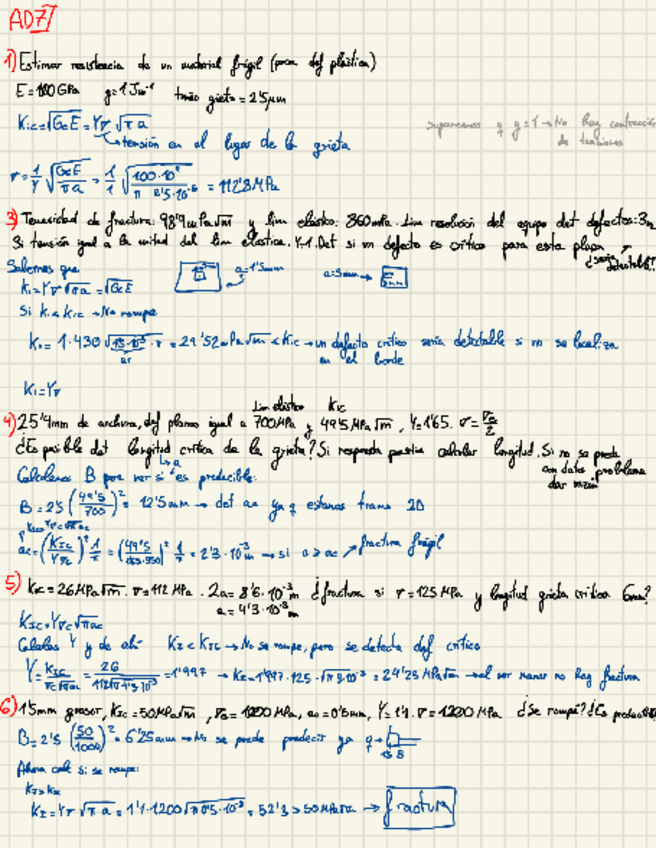 AD7
1) Estimar resistencia de un material frágil (poca def plástica)
E=100GPa g=1Jm⁻¹ tmño grieta=2'5μm
K_IC=√(GcE)=Yσ√(πa)
supongamos q g=1→No hay contracción de tensiones
↳tensión en el lugar de la grieta
σ=1/Y √(GcE/πa)=1/1 √(100·10⁹/π 2'5·10⁻⁶)=112'8MPa
3) Tenacidad de fractura: 98'9MPa√m y lim elástico: 860mPa. Lim resolución del equipo det defectos:3m
Si tensión igual a la mitad del lim elástica. Y=1. Det si un defecto es crítico para esta placa y
¿sería detectable?
Sabemos que
a=1'5mm a=3mm→
K₁=Yσ√(πa)=√(GcE)
Si K₁<K_IC→No rompe
K₁=1·430√(1'5·10⁻³·π)=29'52MPa√m<K_IC→un defecto crítico sería detectable si no se localiza
en el borde
K₁=Yσ
lim elástico K_IC
4) 25'4mm de anchura, def planos igual a 700MPa y 49'5MPa√m, Y=1'65. σ=σe/2
¿Es posible det longitud crítica de la grieta? Si respuesta positiva calcular longitud. Si no se puede
↳a
con datos problema
dar razón
Calculemos B para ver si es predecible:
B=2'5(49'5/700)²=12'5mm→det ac ya q estamos tramo 2D
K_IC=Yσc√πac
ac=(K_IC/Yσc)² 1/π=(49'5/1'65·350)² 1/π=2'3·10⁻³m→si a≥ac→fractura frágil
5) K_IC=26MPa√m. σ=112MPa. 2a=8'6·10⁻³m ¿fractura si σ=125MPa y longitud grieta crítica 6mm?
a=4'3·10⁻³m
K_IC=Yσc√πac
Calculas Y y de ahí K_I<K_IC→No se rompe, pero se detecta def crítico
Y=K_IC/σc√πac=26/112√π4'3·10⁻³=1'997→K_I=1'997·125·√π3·10⁻³=24'23MPa√m→al ser menor no hay fractura
6) 1'5mm grosor, K_IC=50MPa√m, σe=1000MPa, ao=0'5mm, Y=1'1. σ=1200MPa ¿Se rompe? ¿Es predecible
B=2'5(50/1000)²=6'25mm→No se puede predecir ya q→
1'5 B
Ahora calc si se rompe:
K_I>K_IC
K_I=Yσ√πa=1'1·1200√π0'5·10⁻³=52'3>50MPa√m→fractura